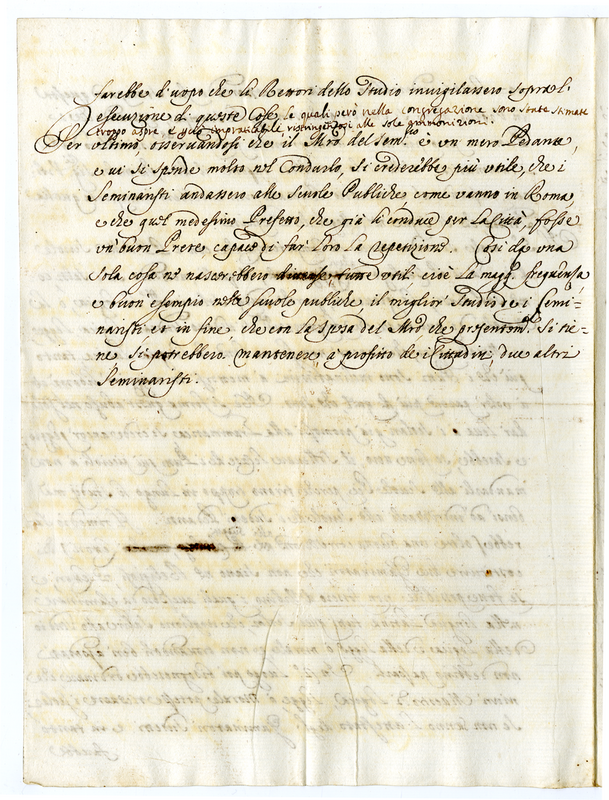 farebbe d'uopo che li Rettori dello Studio invigilassero sopra l'
esecuzione di queste Cose, le quali però nella congregazione sono state stimate
troppo aspre, e quasi impraticabili restringendosi alle sole ammonizioni.
Per ultimo, osservandosi che il Mro del Sem.rio è un mero Pedante,
e vi si spende molto nel Condurlo, si crederebbe più utile, che i
Seminaristi andassero alle Scuole Publiche come vanno in Roma,
e che quel medesimo Prefetto, che già li conduce per la Città, fosse
un buon Prete capace di far loro la repetizione. Così da una
sola cosa ne nascerebbero utili cioè la magg.r frequenza,
e buon'esempio nelle scuole publiche il miglior Studio de i Semi=
naristi et in fine, che con la spesa del Mro che presentem.te si tie=
ne si potrebbero mantenere à profitto de i Cittadini due altri
Seminaristi.